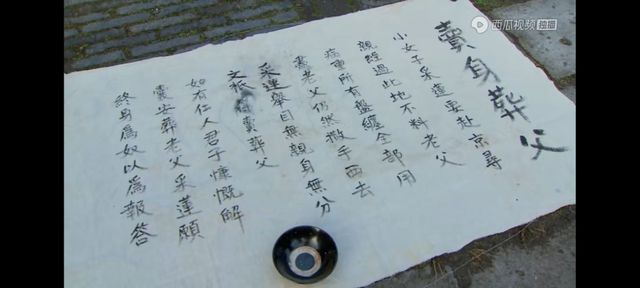 西瓜视频 独播
賣身葬父
小女子采蓮要赴京尋
親經過此地不料老父
病重所有盤纏全部用
盡老父仍然撒手西去
采蓮舉目無親身無分
文祇賣葬父
如有仁人君子慷慨解
囊安葬老父采蓮願
終身為奴以為報答